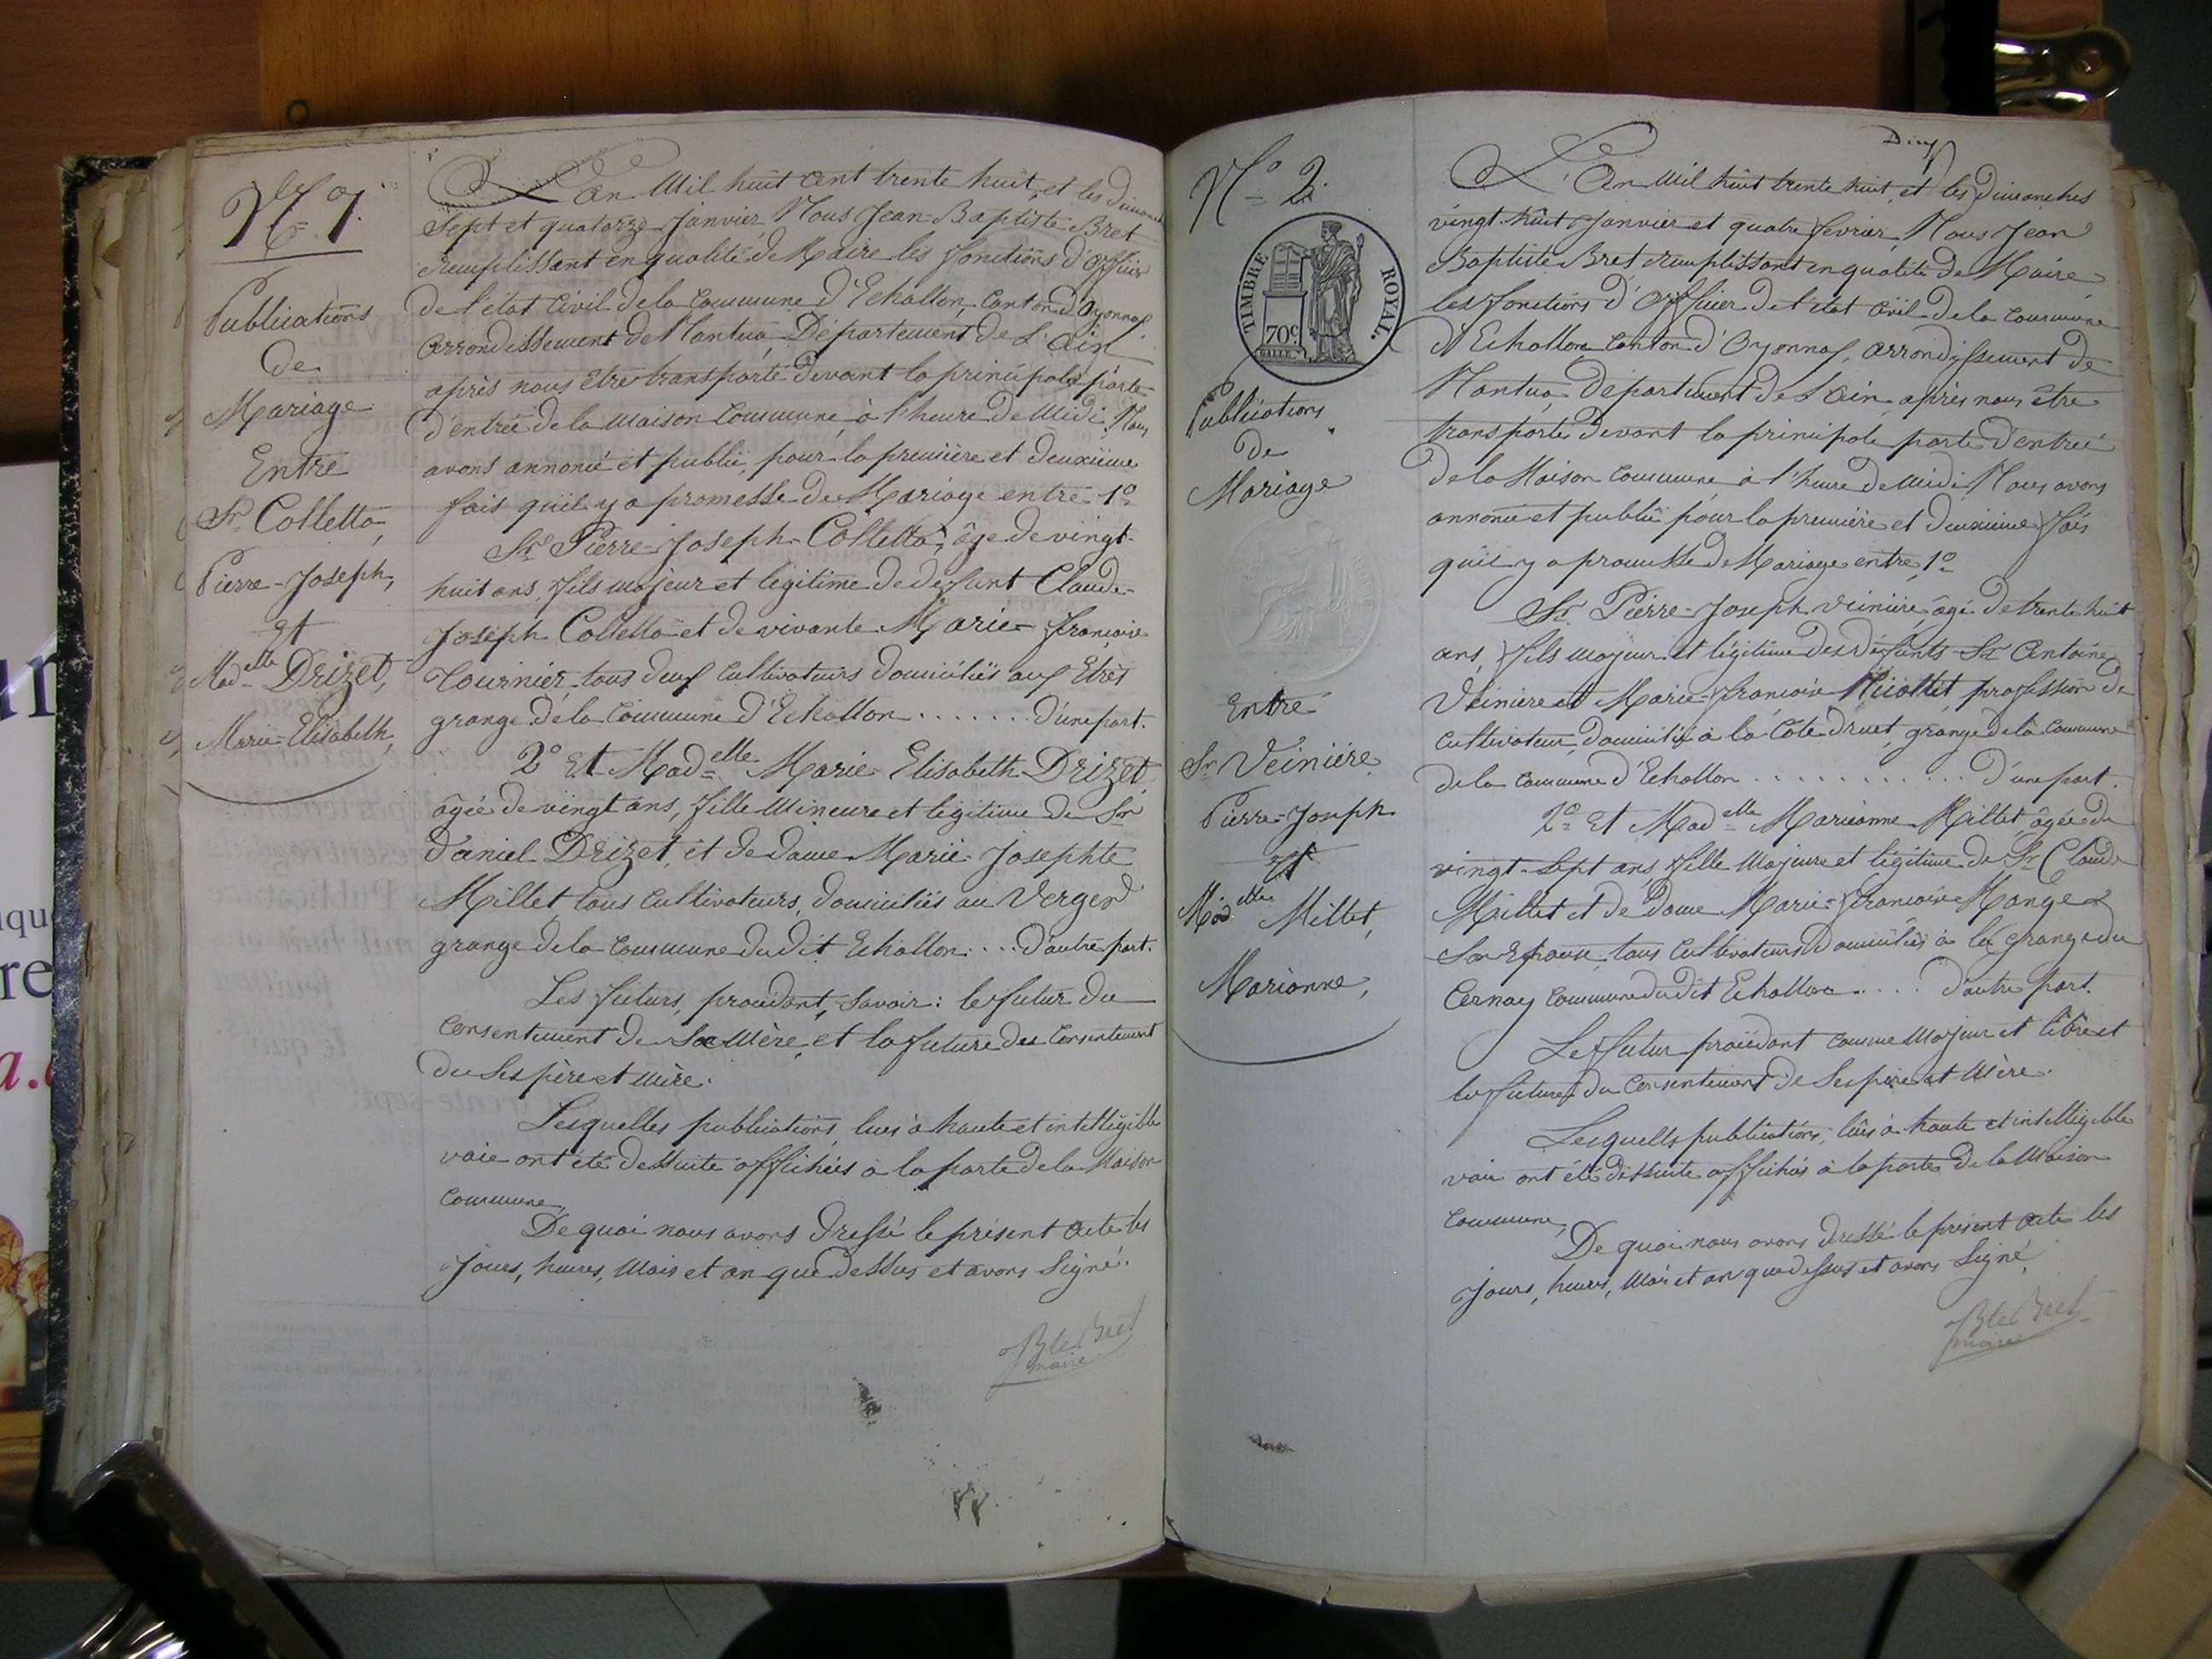 N° 1.
Publications
de
Mariage
Entre
Sr. Colletta,
Pierre-Joseph,
Et
Madelle Drizet,
Marie-Elisabeth,
L'an Mil huit cent trente huit, et les dimanches
sept et quatorze Janvier, Nous Jean-Baptiste Bret
remplissant en qualité de Maire les fonctions d'officier
de l'état civil de la commune d'Echallon, canton d'Oyonnax
arrondissement de Nantua Département de L'Ain
après nous être transporté devant la principale porte
d'entrée de la maison commune, à l'heure de midi, Nous
avons annoncé et publié, pour la première et deuxième
fois qu'il y a promesse de Mariage entre 1°
Sr. Pierre-Joseph-Colletta, âgé de vingt-
huit ans, fils majeur et légitime de defunt Claude-
Joseph Colletta et de vivante Marie-françoise
Tournier, tous deux cultivateurs domiciliés aux Etrès
grange de la commune d'Echallon ....... d'une part.
2° Et Madelle Marie Elisabeth Drizet,
âgée de vingt ans, fille Mineure et légitime de Sr
daniel Drizet, et de dame Marie-Josephte
Millet, tous cultivateurs, domiciliés au Verger
grange de la commune du dit Echallon .... d'autre part.
Les futurs, procédant, savoir: le futur du
consentement de sa Mère, et la future du consentement
de ses père et mère.
Lesquelles publications, lues à haute et intelligible
voie ont été de suite affichées à la porte de la Maison
commune,
De quoi nous avons dressé le présent acte les
jours, heures, Mois et an que dessus et avons signé.
JBte Bret
maire
Dix
N° 2.
TIMBRE ROYAL.
70c
Publications
de
Mariage
Entre
Sr Veinière
Pierre-Joseph
Et
Madelle Millet,
Marianne,
L'An Mil huit trente huit, et les dimanches
vingt-huit Janvier et quatre fevrier, Nous Jean
Baptiste Bret remplissant en qualité de Maire
les fonctions d'Officier de l'état civil de la commune
d'Echallon, canton d'Oyonnax, arrondissement de
Nantua, Département de L'Ain, après nous être
transporté devant la principale porte d'entrée
de la Maison commune à l'heure de midi Nous avons
annoncé et publié pour la première et deuxième fois
qu'il y a promesse de Mariage entre, 1°
Sr. Pierre-Joseph Veinière, âgé de trente huit
ans, fils majeur et légitime des défunts Sr Antoine
Veinière et Marie-françoise Nicollet, profession de
cultivateur, domicilié à la Côte druet, grange de la commune
de la commune d'Echallon ........... d'une part.
2° Et Madelle Marianne Millet âgée de
vingt-sept ans, fille Majeure et légitime de Sr Claude
Millet et de Dame Marie-françoise Mange
sa Epouse, tous cultivateurs domiciliés à la grange du
Cernay commune du dit Echallon .... d'autre part.
Le futur procédant comme Majeur et libre et
la future du consentement de ses père et Mère.
Lesquelles publications, lues à haute et intelligible
voie ont été de suite affichés à la porte de la Maison
commune,
De quoi nous avons dressé le présent acte les
jours, heures, Mois et an que dessus et avons signé,
JBte Bret
maire